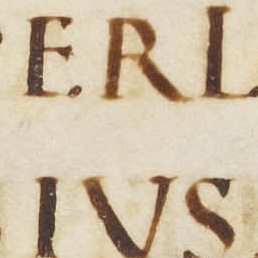 E. RL
IVS